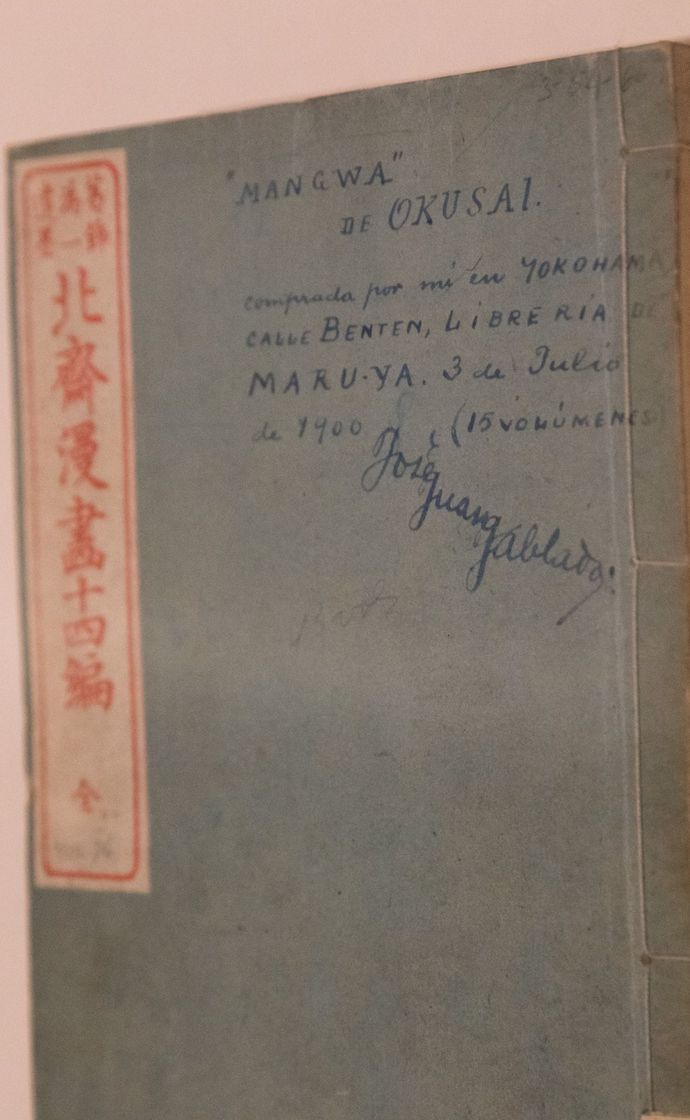 "MANGWA"
DE OKUSAI.
comprada por mí en YOKOHAMA,
CALLE BENTEN, LIBRERIA DE
MARU-YA. 3 de Julio
de 1900 (15 VOLÚMENES)
José
Juan
Tablada.
北齋漫畫十四編
全